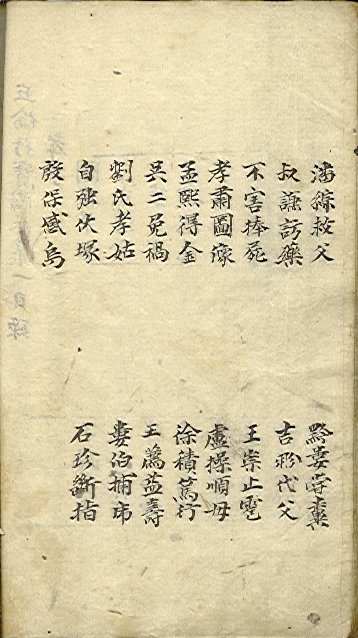 潘綜救父 黔婁嘗糞
叔謙訪藥 吉翂代父
不害捧屍 王崇止雹
孝肅圖像 盧操順母
孟熙得金 徐積篤行
吳二免禍 王薦益壽
劉氏孝姑 婁伯捕虎
自强伏塚 石珍斷指
殷保感烏